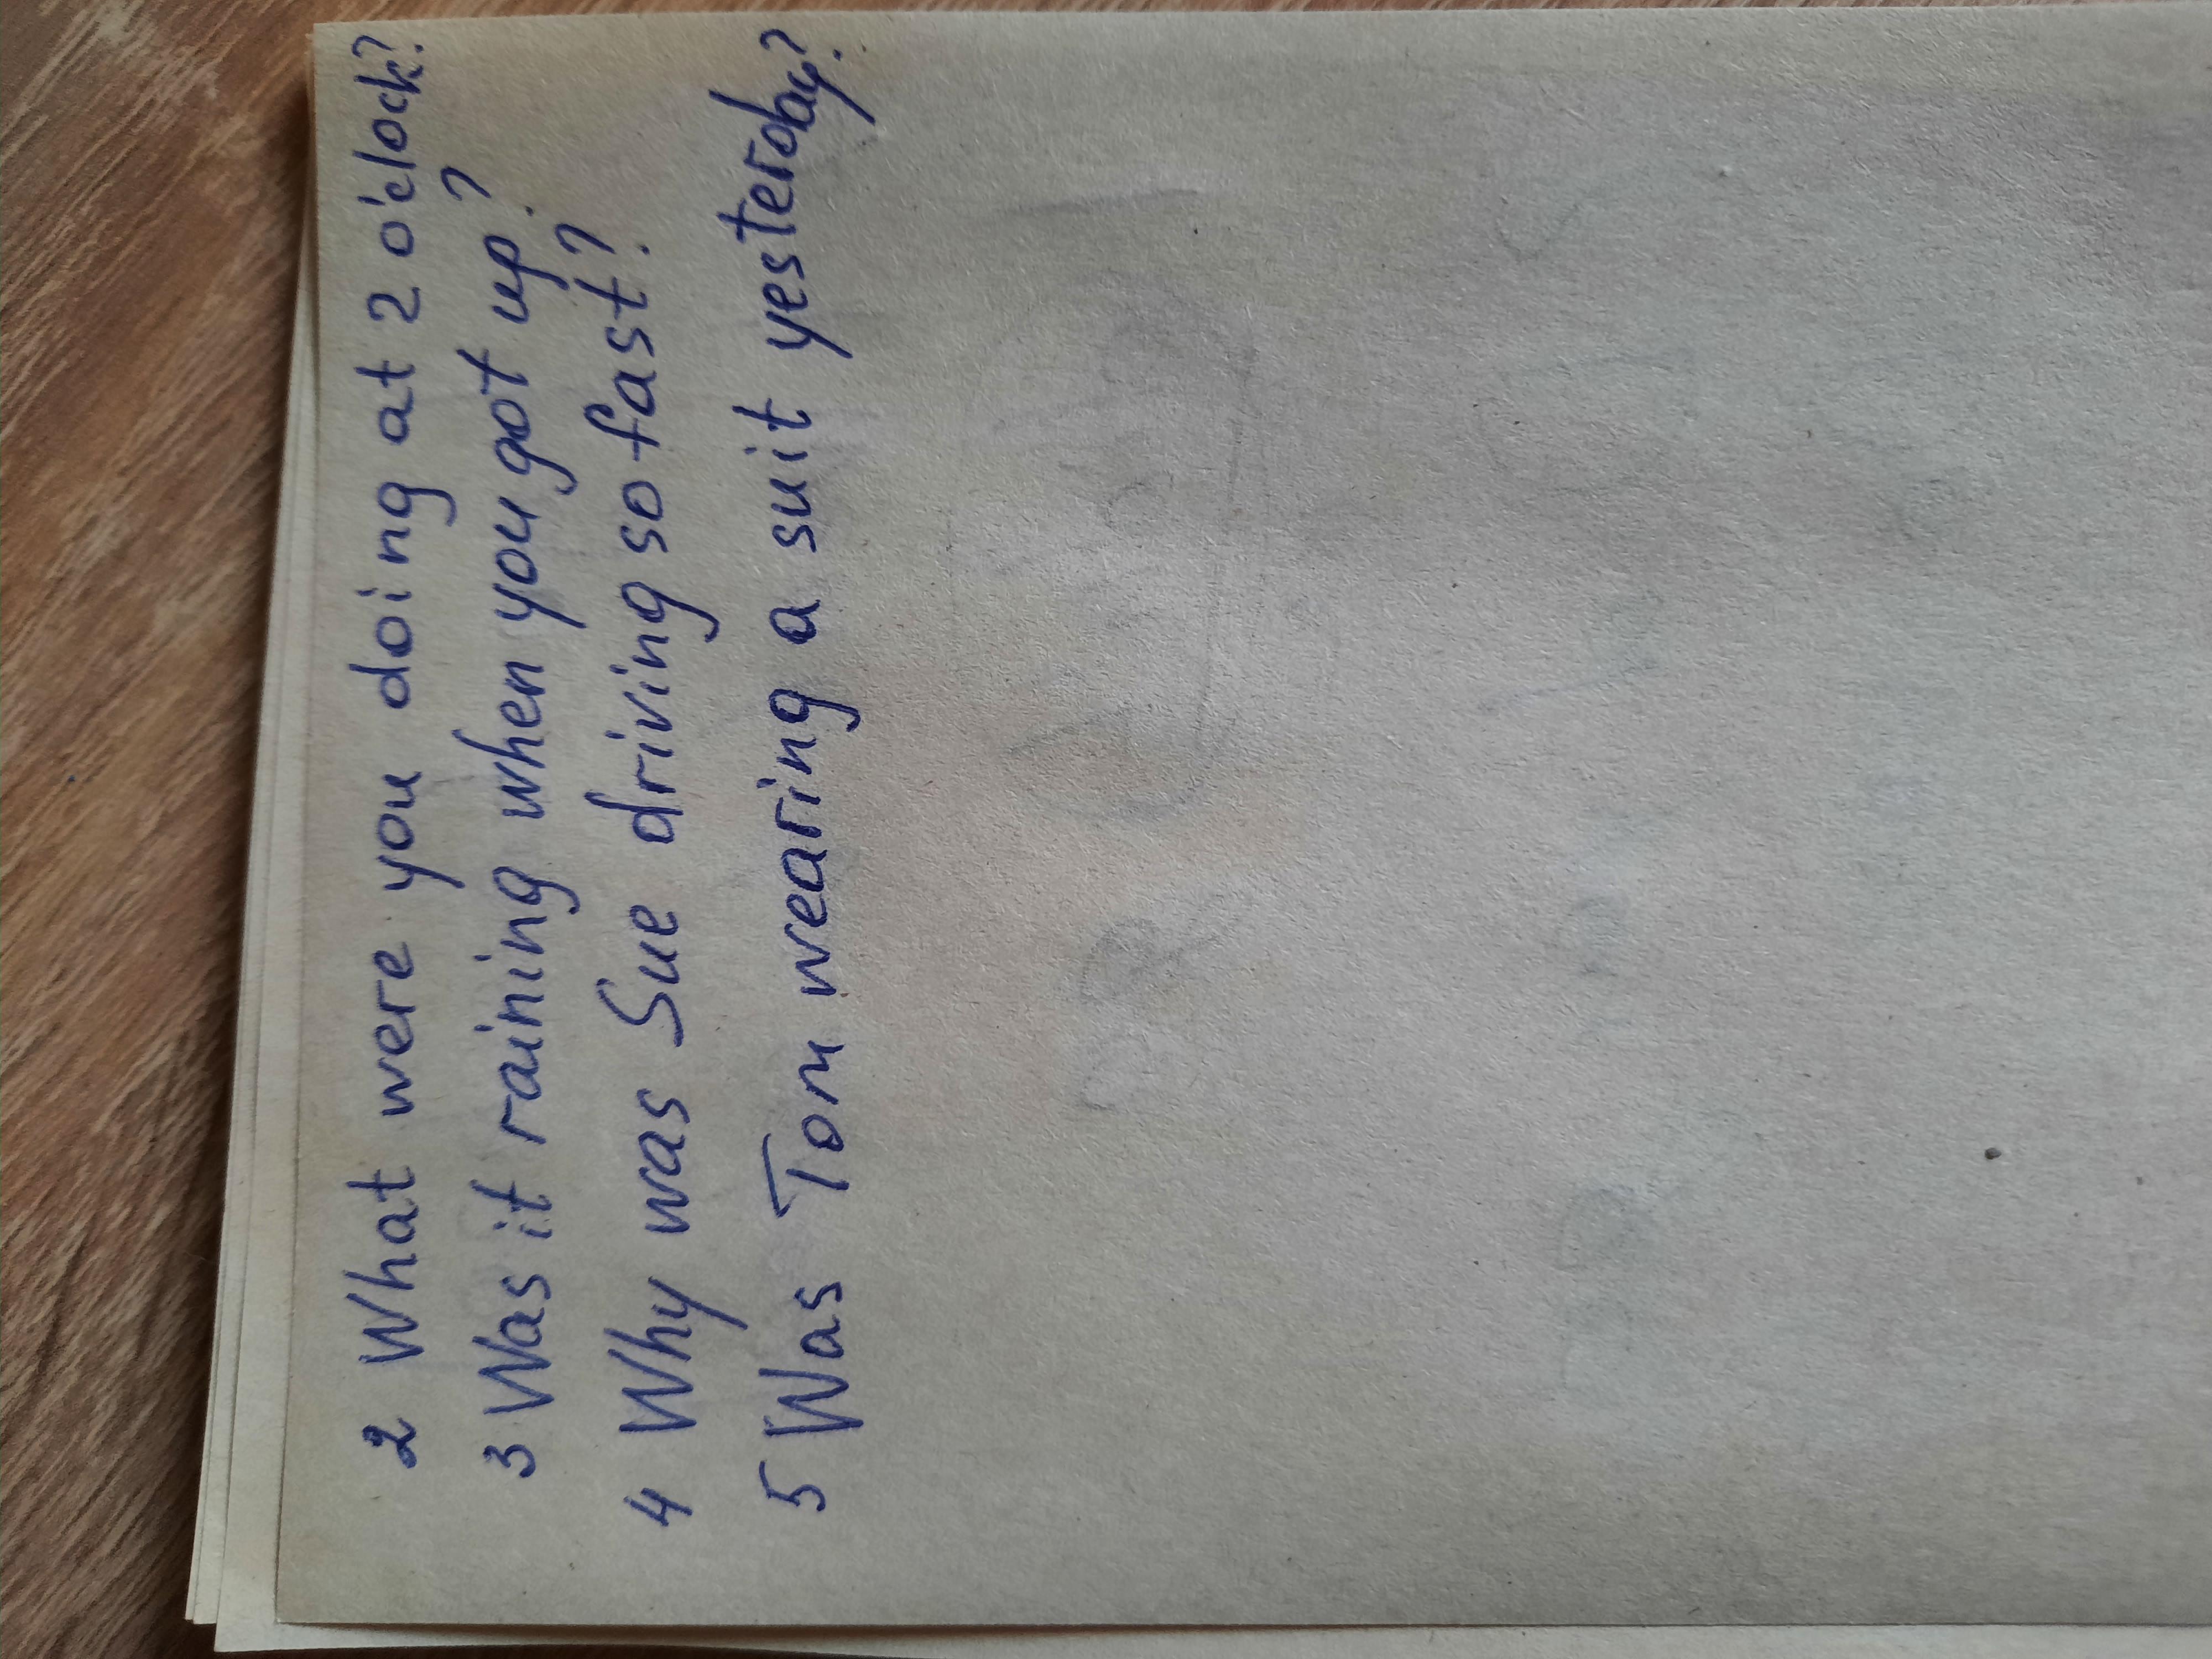 2 What were you doing at 2 o'clock?
3 Was it raining when you got up?
4 Why was Sue driving so fast?
5 Was Tom wearing a suit yesterday?